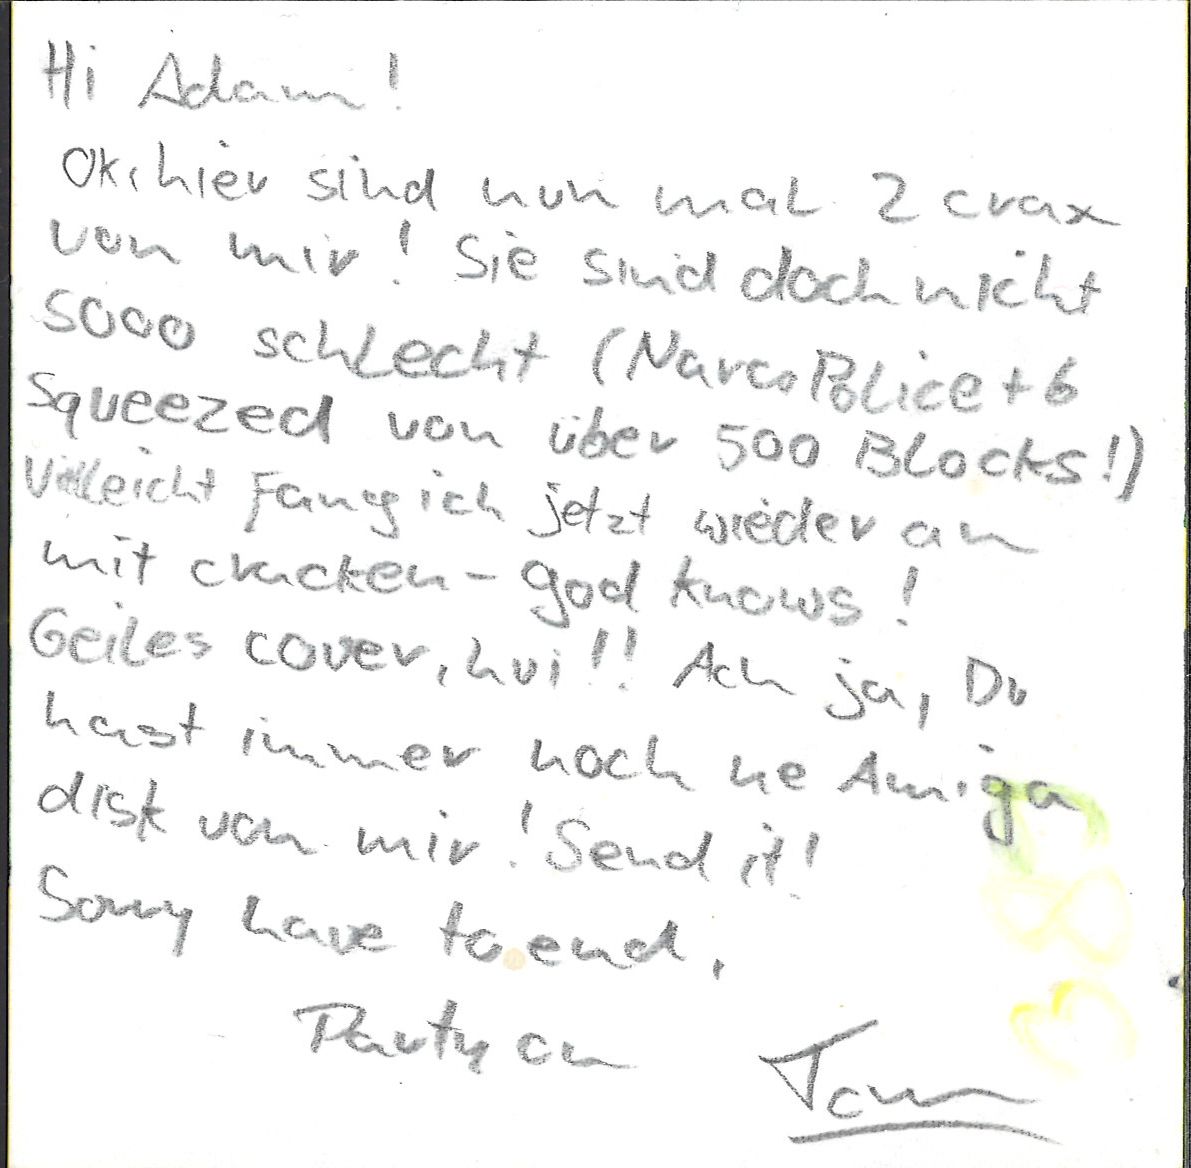 Hi Adam!
Ok, hier sind nun mal 2 crax
von mir! Sie sind doch nicht
sooo schlecht (NarcoPolice+6
Squeezed von über 500 Blocks!)
Villeicht Fang ich jetzt wieder an
mit cracken - god knows!
Geiles cover, hui!! Ach ja, Du
hast immer noch ne Amiga
disk von mir! Send it!
Sorry have to end.
Party on
Tom